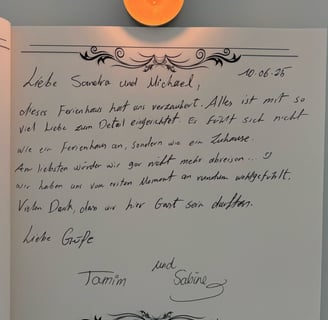 10.06.25
Liebe Sandra und Michael,
dieses Ferienhaus hat uns verzaubert. Alles ist mit so
viel Liebe zum Detail eingerichtet. Es fühlt sich nicht
wie ein Ferienhaus an, sondern wie ein Zuhause.
Am liebsten würden wir gar nicht mehr abreisen... :)
wir haben uns vom ersten Moment an rundum wohlgefühlt.
Vielen Dank, dass wir hier Gast sein durften.
Liebe Grüße
Tamim und Sabine